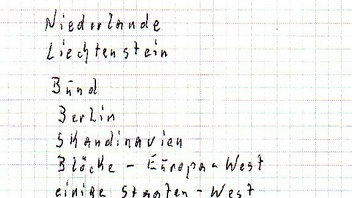 Niederlande
Liechtenstein
Bund
Berlin
Skandinavien
Blöcke - Europa-West
einige Staaten-West